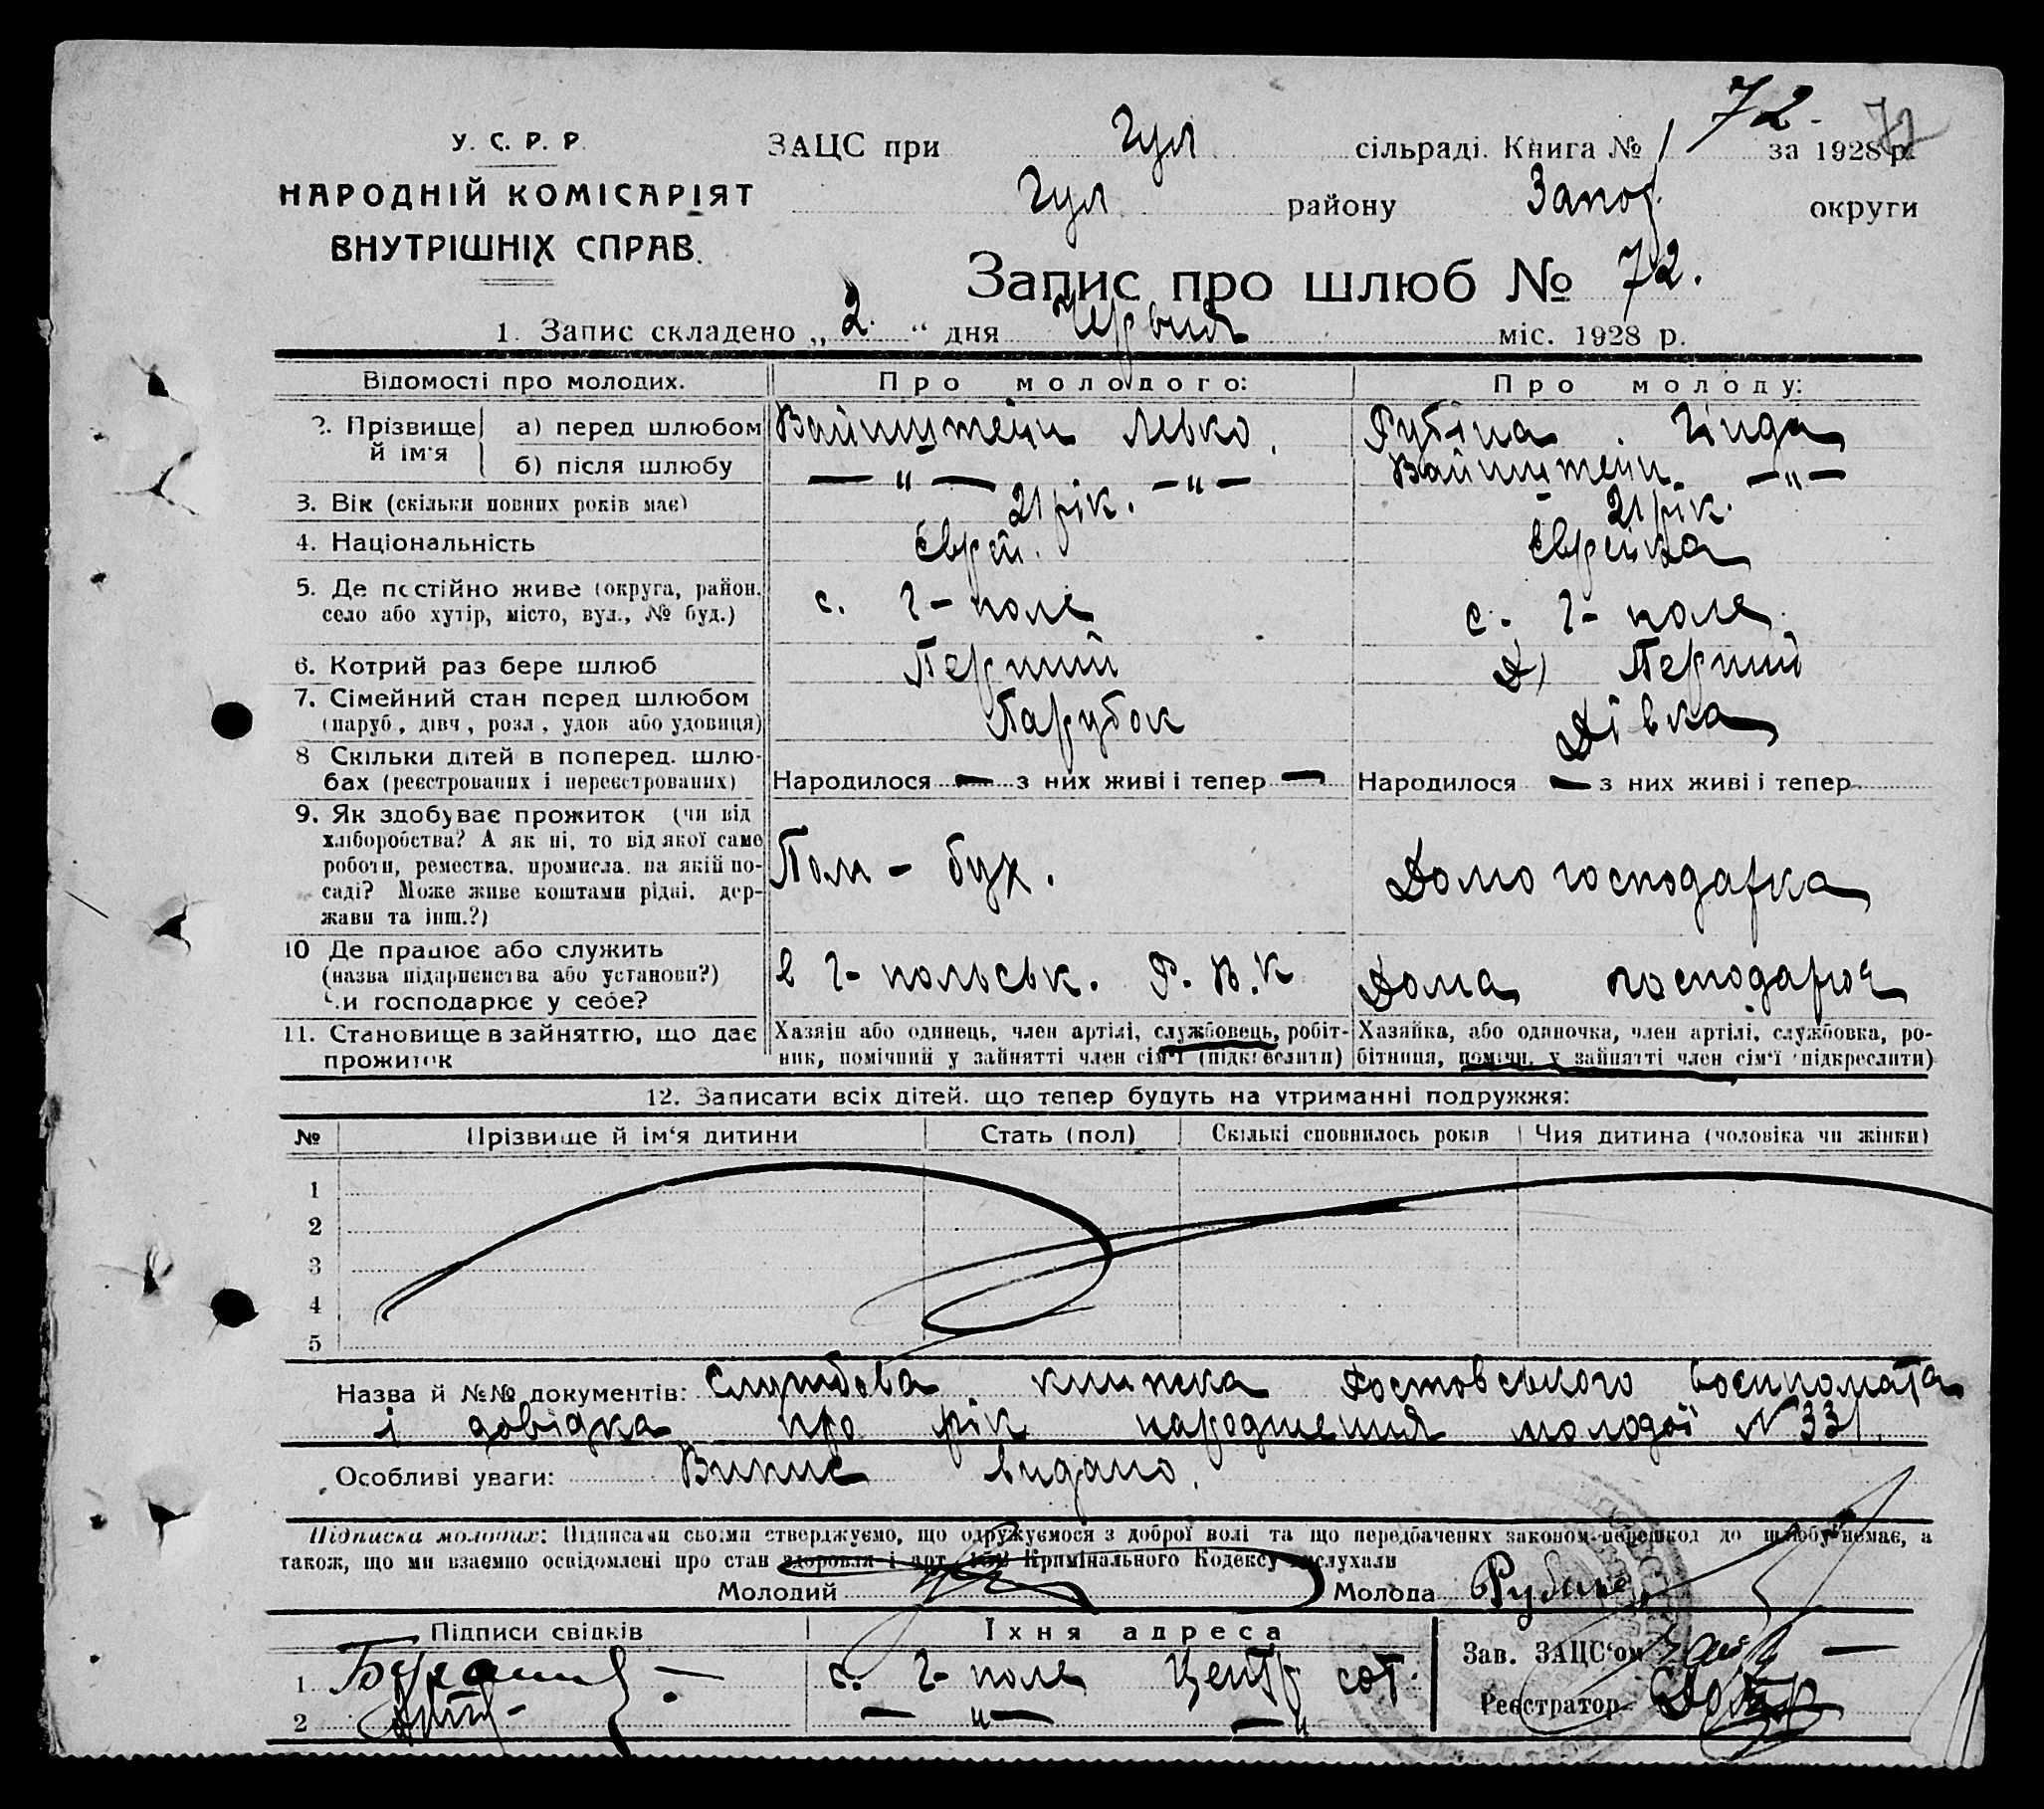 72. 72
У. С. Р. Р.
НАРОДНІЙ КОМІСАРІЯТ
ВНУТРІШНІХ СПРАВ.
ЗАЦС при Гул сільраді. Книга № 1 за 1928 р.
Гул району Запор. округи
Запис про шлюб № 72.
1. Запис складено „ 2. “ дня Червня міс. 1928 р.
Відомості про молодих. Про молодого: Про молоду:
2. Прізвище й ім'я а) перед шлюбом Вайнштейн Левко. Рубіна. Гінда
б) після шлюбу — " — — " — Вайнштейн — " —
3. Вік (скільки повних років має) 21 рік. 21 рік.
4. Національність Єврей. Єврейка
5. Де постійно живе (округа, район, с. Г-поле с. Г-поле.
село або хутір, місто, вул., № буд.)
6. Котрий раз бере шлюб Перший Перший
7. Сімейний стан перед шлюбом Парубок Дівка
(паруб., дівч., розл., удов або удовиця)
8 Скільки дітей в поперед. шлю-
бах (реєстрованих і нереєстрованих) Народилося — з них живі і тепер — Народилося — з них живі і тепер
9. Як здобуває прожиток (чи від
хліборобства? А як ні, то від якої саме
роботи, ремества, промисла, на якій по- Пом - бух. Домогосподарка
саді? Може живе коштами рідні, дер-
жави та інш.?)
10 Де працює або служить
(назва підприємства або установи?) в Г-польськ. Р.В.К Дома господарює
Чи господарює у себе?
11. Становище в зайняттю, що дає Хазяін або одинець, член артілі, службовець, робіт- Хазяйка, або одиночка, член артілі, службовка, ро-
прожиток ник, помічний у зайнятті член сім'ї (підкреслити) бітниця, помічн. у зайнятті член сім'ї (підкреслити)
12. Записати всіх дітей, що тепер будуть на утриманні подружжя:
№ Прізвище й ім'я дитини Стать (пол) Скількі сповнилось років Чия дитина (чоловіка чи жінки)
1
2
3
4
5
Назва й №№ документів: Службова книжка Ростовського Военкомата
і довідка про рік народження молодої N 331.
Особливі уваги: Випис видано.
Підписка молодих: Підписами своїми стверджуємо, що одружуємося з доброї волі та що передбачених законом перешкод до шлюбу немає, а
також, що ми взаємно освідомлені про стан здоровля і арт. Кримінального Кодексу вислухали
Молодий Молода Рубіна
Підписи свідків Їхня адреса
1 с. Г-поле Центр сот. Зав. ЗАЦС'ом
2 — " — — " Реєстратор